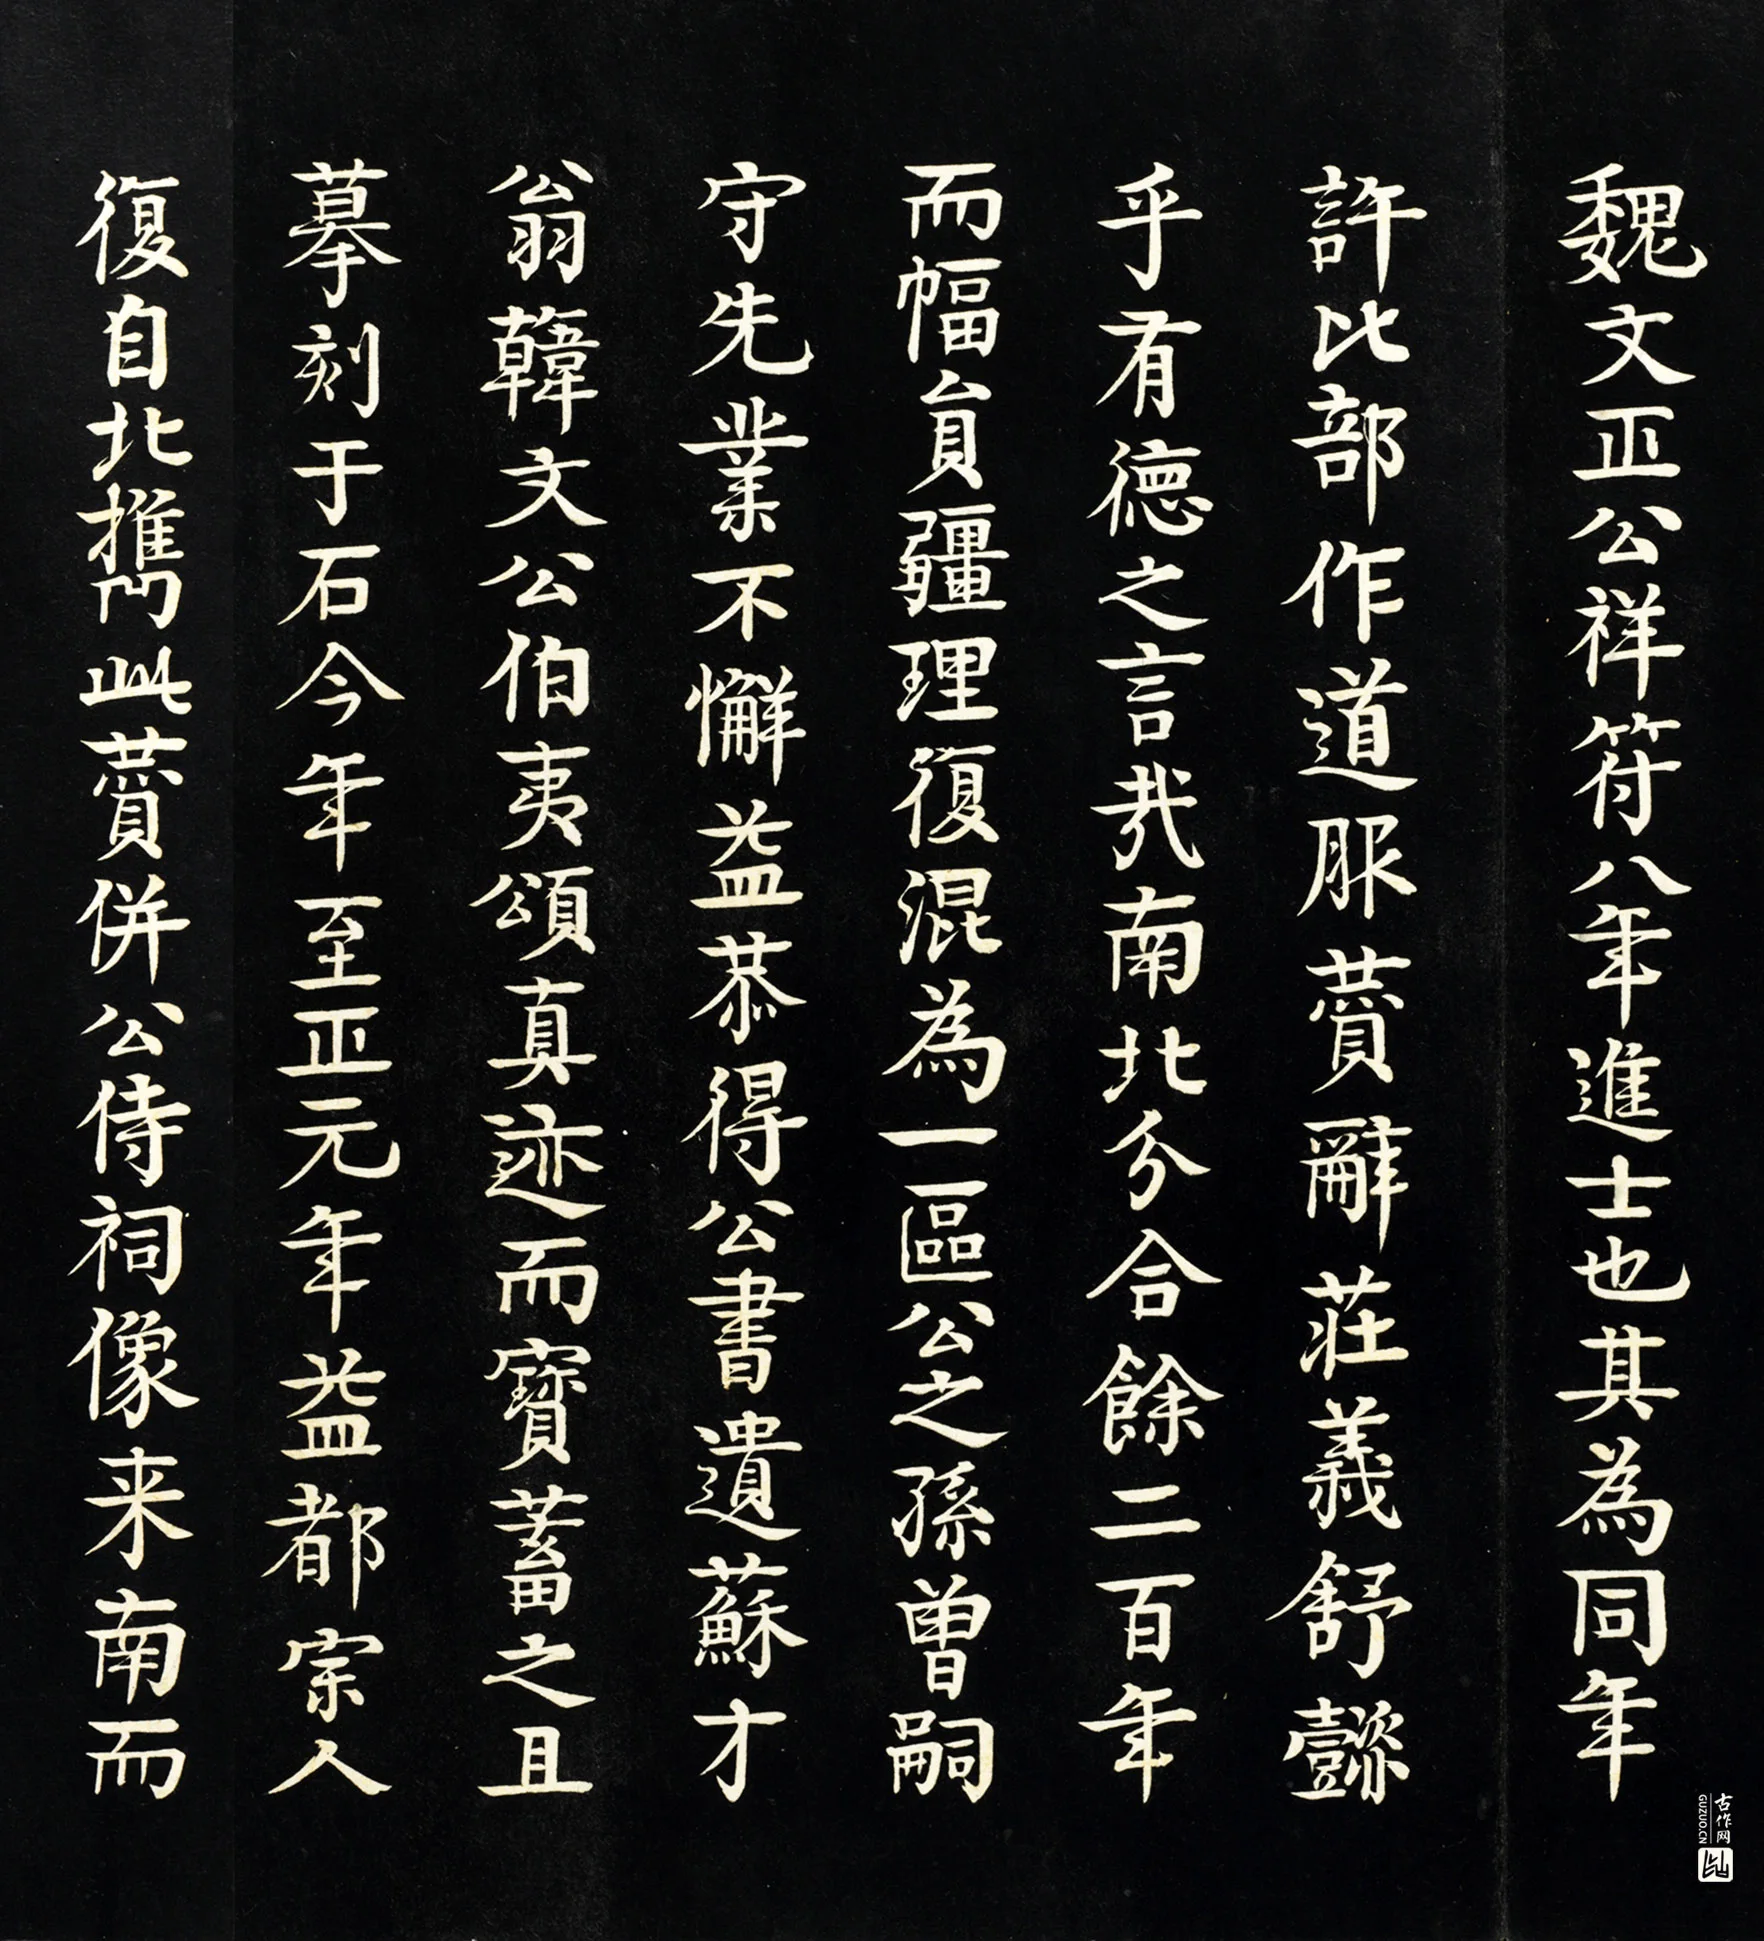 魏文正公祥符八年進士也其為同年
許比部作道服賛辭莊義舒懿
乎有德之言哉南北分合餘二百年
而幅員疆理復混為一區公之孫曾嗣
守先業不懈益恭得公書遺蘇才
翁韓文公伯夷頌真迹而寶蓄之且
摹刻于石今年至正元年益都宗人
復自北攜此賛併公侍祠像来南而
古作网
GUZUO.CN